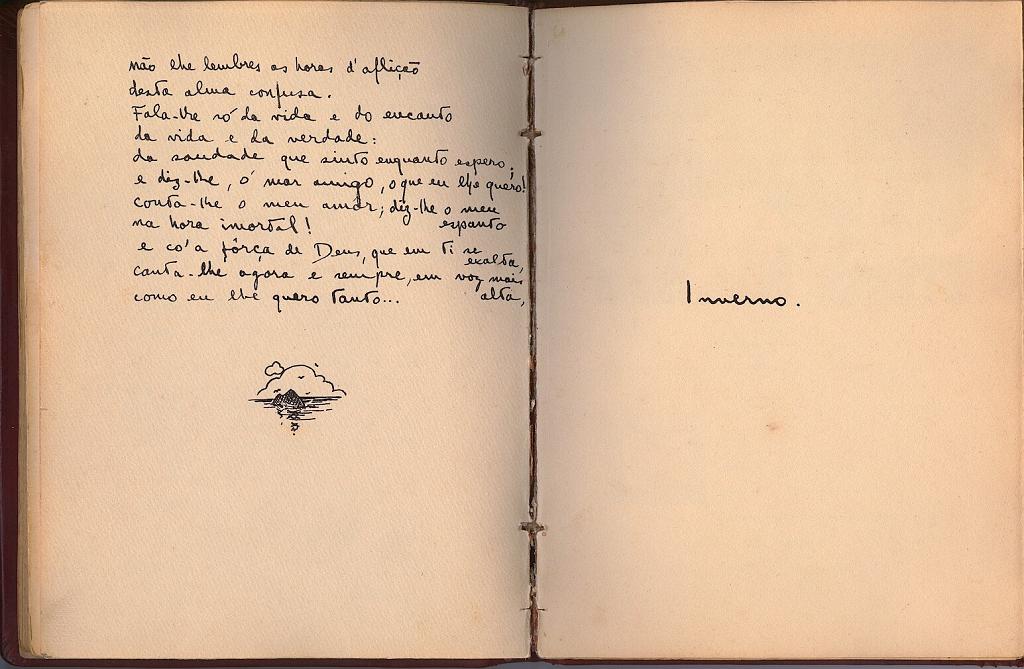 não lhe lembres as horas d'aflição
desta alma confusa.
Fala-lhe só da vida e do encanto
da vida e da verdade:
da saudade que sinto enquanto espero;
e diz-lhe, ó mar amigo, o que eu lhe quero!
conta-lhe o meu amôr; diz-lhe o meu espanto
na hora imortal!
e co'a fôrça de Deus, que em ti se exalta,
canta-lhe agora e sempre, em voz mais alta,
como eu lhe quero tanto...
Inverno.